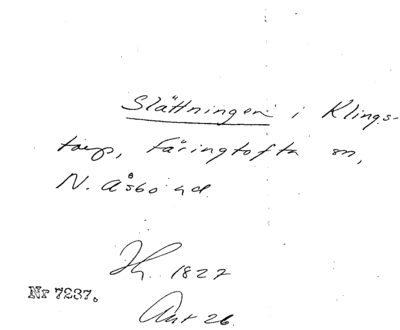 Slättningen i Klings-
torp, Färingtofta sn,
N. Åsbo hd.
Hg. 1827
Nr 7237.
Akt 26.